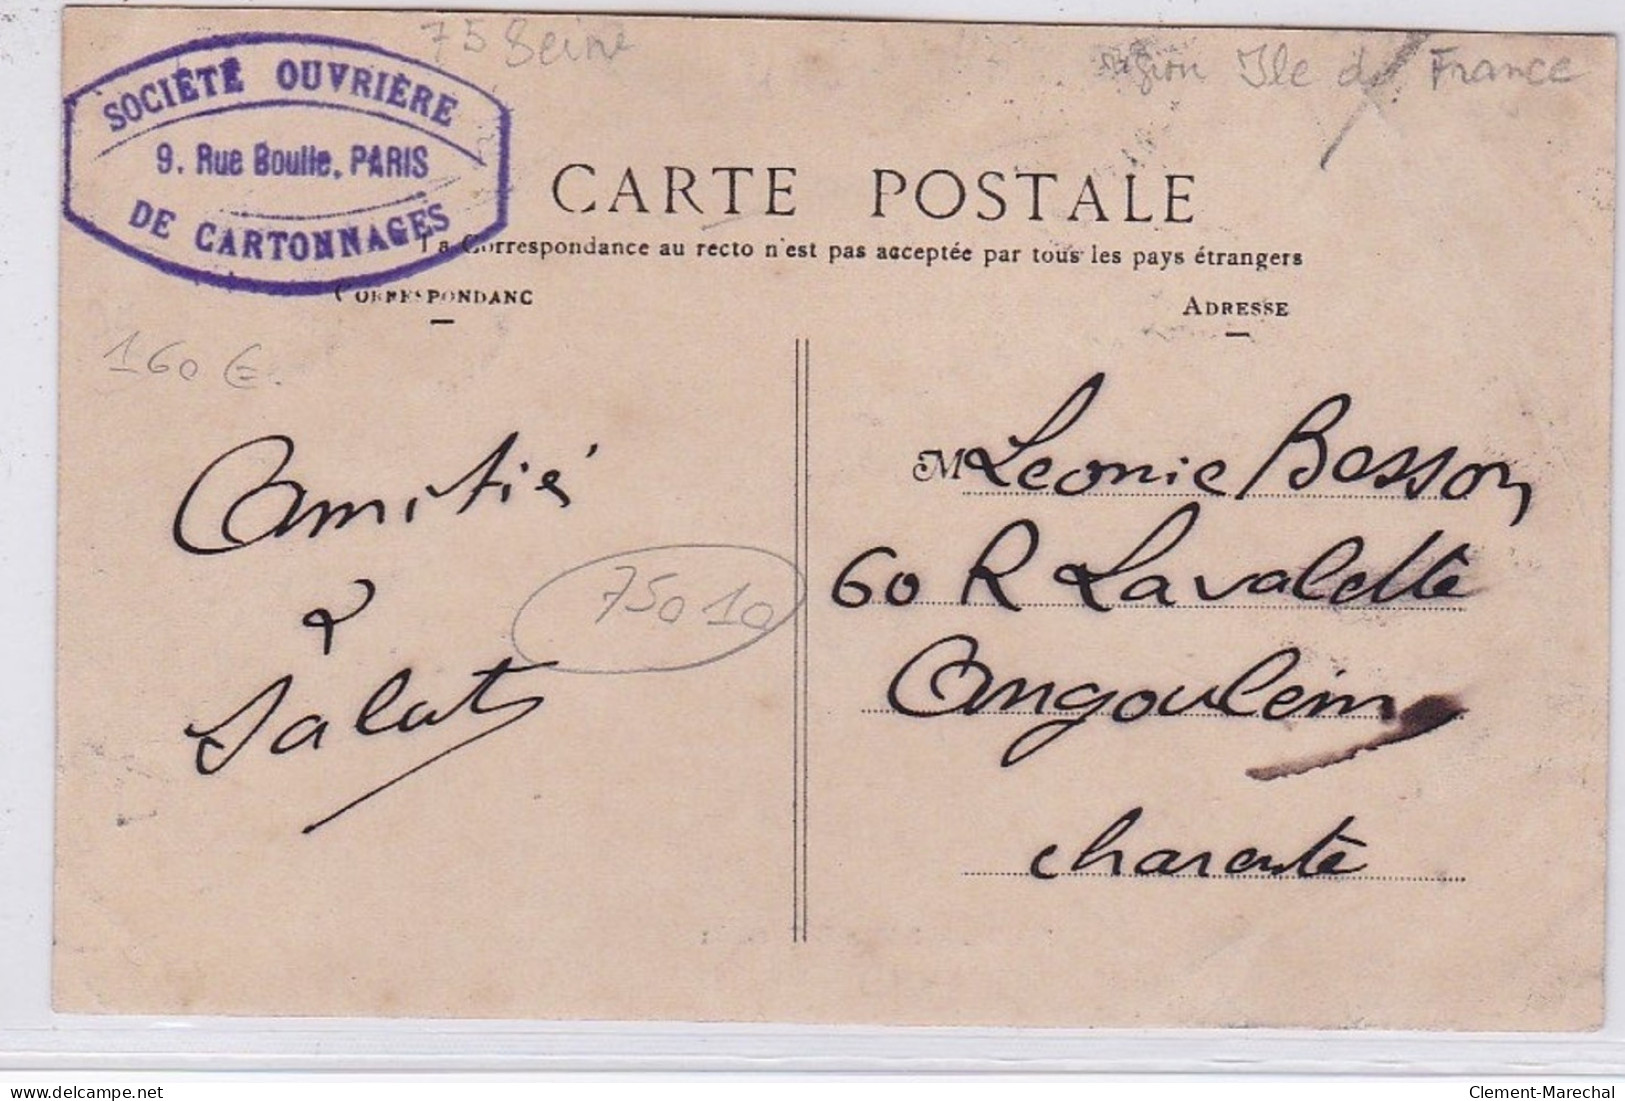 75 Seine
région Ile de France
SOCIÉTÉ OUVRIÈRE
9. Rue Boulle, PARIS
DE CARTONNAGES
CARTE POSTALE
La Correspondance au recto n'est pas acceptée par tous les pays étrangers
CORRESPONDANC
ADRESSE
160 €.
Amitié
&
Salut
75010
M Leonie Besson
60 R Lavalette
Angouleim
charente
delcampe.net
Clement-Marechal